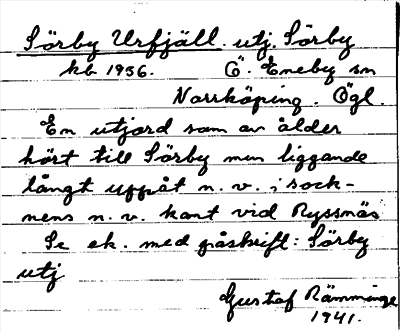 Sörby Urfjäll. utj. Sörby
kb 1956. Ö. Eneby sn
Norrköping. Ögl.
En utjord som av ålder
hört till Sörby men liggande
långt uppåt n. v. i sock-
nens n. v. kant vid Ryssnäs
Se ek. med påskrift: Sörby
utj
Gustaf Rämminge
1941.